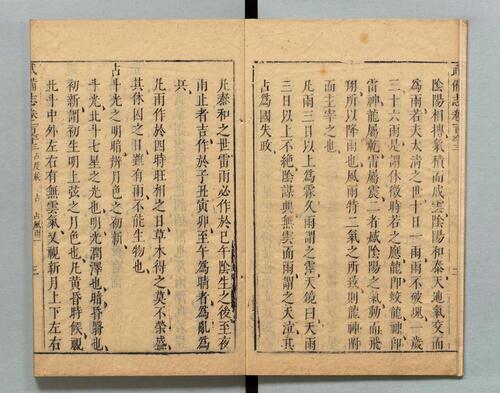 武備志卷百六十三
陰陽相摶氣積而成雲陰陽和泰天地氣交而
為雨若夫太清之世十日一雨雨不破塊一歲
三十六雨是謂休徵時若之應龍卽蛟龍神卽
雷神龍屬乾雷屬震二者感陰陽之氣動而飛
翔所以降雨也風雨特二氣之所致則龍神所
而主宰之也
凡雨三日以上為霖久雨謂之霪天鏡曰天雨
三日以上不絶陰謀興無雲而雨謂之天泣其
占為國失政
凡泰和之世雷雨必作於巳午陰生之後至夜
而止者吉作於子丑寅卯至午為晴者為亂為
兵
凡雨作於四時旺相之日草木得之莫不榮盛
其休囚之日雖有雨不能生物也
占斗光之明暗辨月色之初新
斗光北斗七星之光也明光潤澤也暗昏翳也
初新謂初生明上弦之月色也凡黃昏時候視
北斗中外左右有無雲氣又視新月上下左右
武備志卷百六十三 占度載 占 占風雨 三